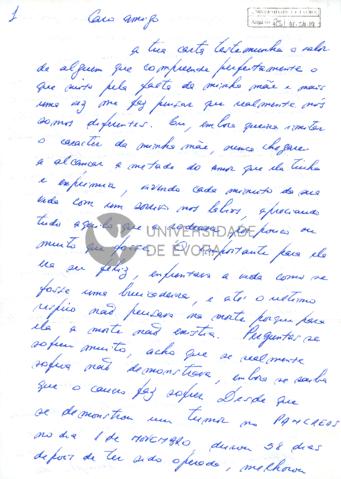 1
Caro amigo
UNIVERSIDADE DE ÉVORA
a tua carta testemunha o valor
de alguem que compreende perfeitamente o
que sinto pela falta da minha mãe e mais
uma vez me faz pensar que realmente nós
somos diferentes. Eu, embora queira imitar
o caracter da minha mãe, nunca chegarei
a alcançar a metade do amor que ela tinha
e exprimia, vivendo cada minuto da sua
vida com um sorriso nos labios, apreciando
tudo aquilo que pouco ou
muito que fosse. O importante para ela
era ser feliz, enfrentava a vida como se
fosse uma brincadeira, e até o ultimo
respiro não pensava na morte porque para
ela a morte não existia. Perguntas se
sofreu muito, acho que se realmente
sofria não demonstrava, embora se saiba
que o cancro faz sofrer. Desde que
se demonstrou um tumor no PANCREAS
no dia 1 de NOVEMBRO durou 58 dias
depois de ter sido operada, melhorou
UNIVERSIDADE
DE ÉVORA